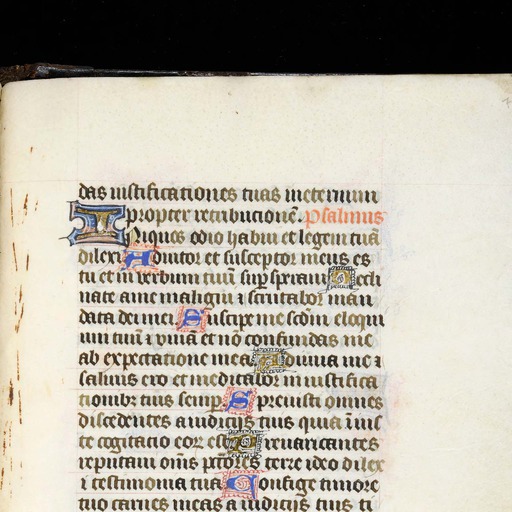 das iustificationes tuas in eternum
propter retributionē. Psalmus
Iniquos odio habui et legem tuā
dilexi Adiutor et susceptor meus es
tu et in verbum tuū supsperaui Decli
nate a me maligni ⁊ scrutabor man
data dei mei Suscipe me scdm eloqui
um tuū ⁊ viuā et nō confundas me
ab expectatione mea Adiuua me ⁊
saluus ero et meditabor in iustifica
tionibz tuis semp Spreuisti omnes
discedentes a iudicijs tuis quia iius
te cogitatio eor est Preuaricantes
reputaui oms pctores terre ideo dilex
i testimonia tua Confige timore
tuo carnes meas a iudicijs tuis ti